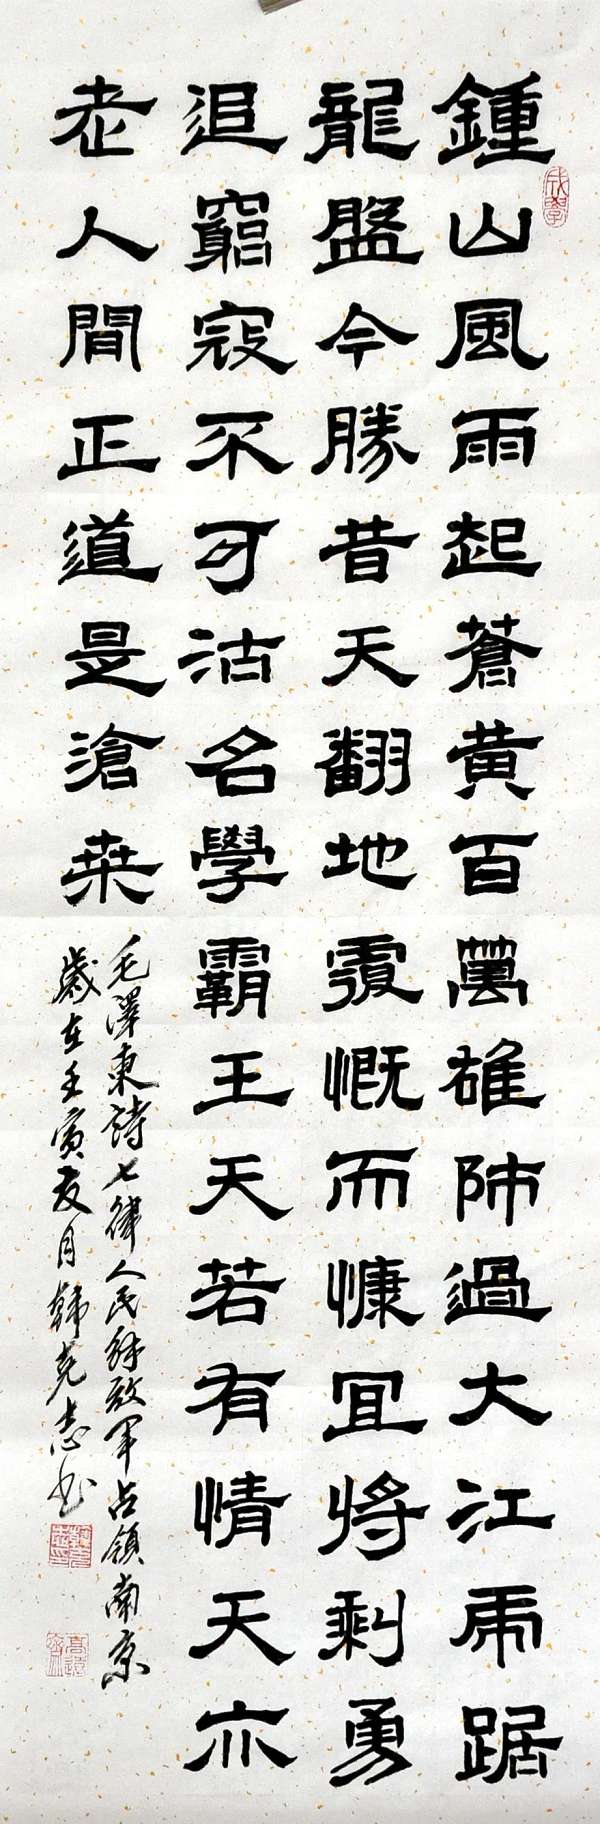 鍾山風雨起蒼黄百萬雄師過大江虎踞
龍盤今勝昔天翻地覆慨而慷宜將剩勇
追窮寇不可沽名學霸王天若有情天亦
老人間正道是滄桑
毛澤東詩七律人民解放軍占領南京
歲在壬寅夏月韓克志書